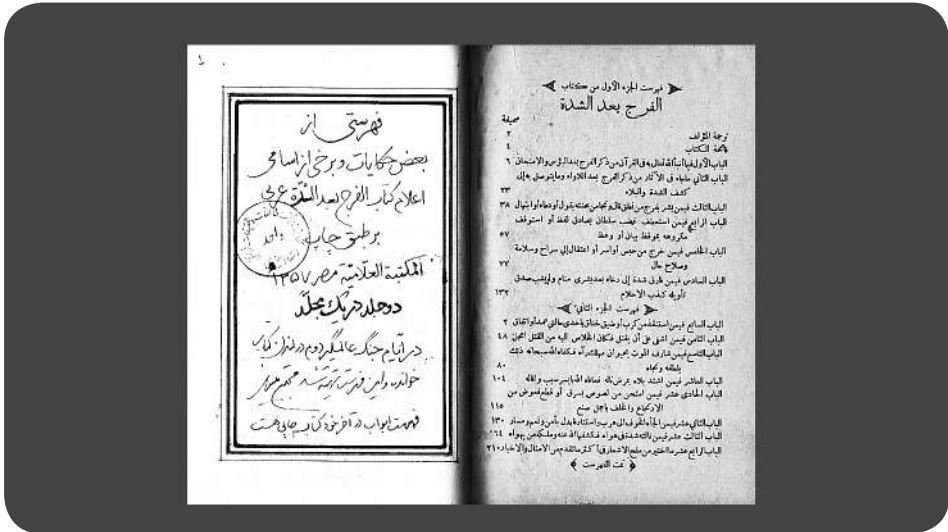 ١
فهرستی از
بعض حکایات و برخی از اسامی
اعلام کتاب الفرج بعد الشدّة عربی
بر طبق چاپ
المکتبة العلامیّة مصر ١٣٥٧
دو جلد در یک مجلّد
در ایّام جنگ عالمگیر دوم در لندن کتاب
خوانده و این فهرست تهیّه شد مجتبی مینوی
فهرست ابواب در آخر خود کتاب چاپی هست
فهرست الجزء الأول من كتاب
الفرج بعد الشدة
صحيفة
ترجمة المؤلف ٢
الكتاب ٤
الباب الأول فيما أنبأ الله تعالى به في القرآن من ذكر الفرج بعد البؤس والامتحان ٦
الباب الثاني ماجاء في الآثار من ذكر الفرج بعد اللاواء ومايتوصل به إلى
كشف الشدة والبلاء ٢٣
الباب الثالث فيمن بشر بفرج من نطق فال ونجا من محنته بقول أودعاء أوابتهال ٣٨
الباب الرابع فيمن استعطف غضب سلطان بصادق لفظ أو استوقف
مكروهه بموقظ بيان أو وعظ ٥٧
الباب الخامس فيمن خرج من حبس أوأسر أو اعتقال إلى سراح وسلامة
وصلاح حال ٧٧
الباب السادس فيمن فارق شدة إلى رخاء بعد بشرى منام ولم يشب صدق
تأويله كذب الأحلام ١٣٢
فهرست الجزء الثاني
الباب السابع فيمن استنقذ من كرب أوضيق خناق بإحدى حالتي عمد أو اتفاق ٢
الباب الثامن فيمن أشفى على أن يقتل فكان الخلاص إليه من القتل أعجل ٤٨
الباب التاسع فيمن شارف الموت بحيوان مهلك رآه فكفاه الله سبحانه ذلك
بلطفه ونجاه ٨٠
الباب العاشر فيمن اشتد بلاؤه بمرض ناله فعافاه الله بأيسر سبب وأقاله ١٠٤
الباب الحادي عشر فيمن امتحن من لصوص بسرق أو قطع فعوض من
الارتجاع والخلف بأجمل صنع ١١٥
الباب الثاني عشر فيمن ألجأه الخوف إلى هرب واستتار فبدل بأمن ونعم ومسار ١٣٠
الباب الثالث عشر فيمن نالته شدة في هواه فكشفها الله عنه وملكه من يهواه ١٦٤
الباب الرابع عشر ما اختير من ملح الأشعار في أكثر ما تقدم من الأمثال والأخبار ٢١٠
تمت الفهرست